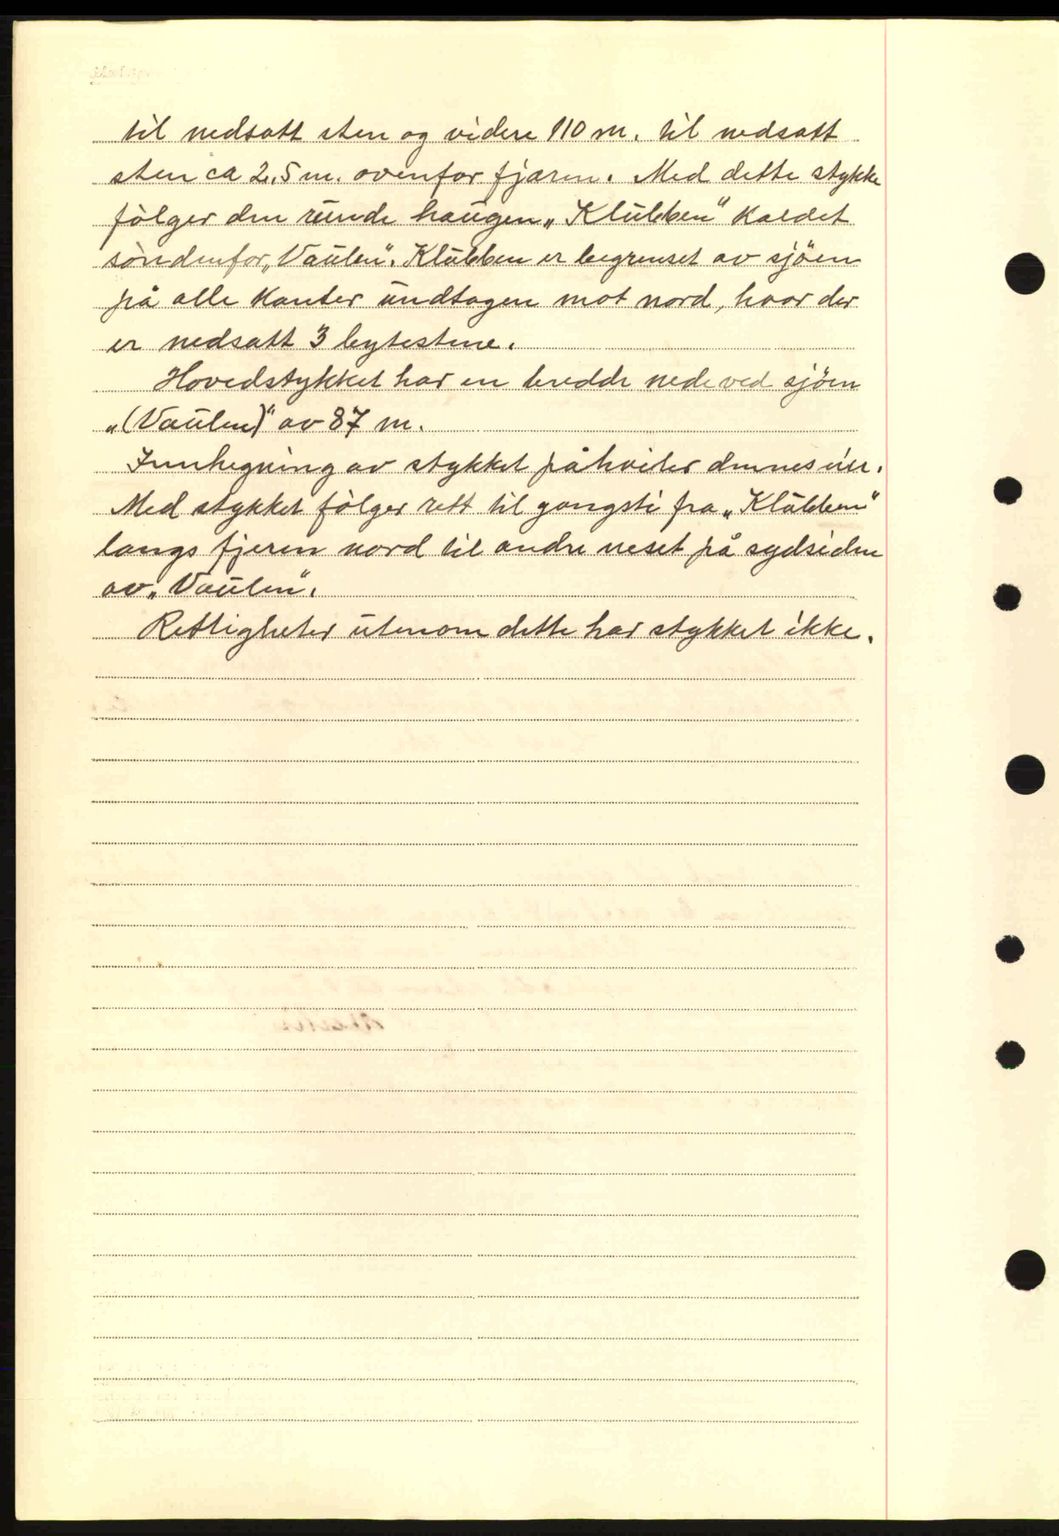 til nedsatt sten og videre 110 m. til nedsatt
sten ca 2.5 m. ovenfor fjæren. Med dette stykke
følger den runde haugen „Klubben" kaldet
søndenfor „Vaulen". Klubben er begrenset av sjöen
på alle kanter undtagen mot nord, hvor der
er nedsatt 3 bytestene.
Hovedstykket har en bredde nede ved sjöen
„(Vaulen)" av 87 m.
Innhegning av stykket påhviler dennes eier.
Med stykket følger rett til gangsti fra „Klubben"
langs fjeren nord til andre neset på sydsiden
av „Vaulen".
Rettigheter utenom dette har stykket ikke.